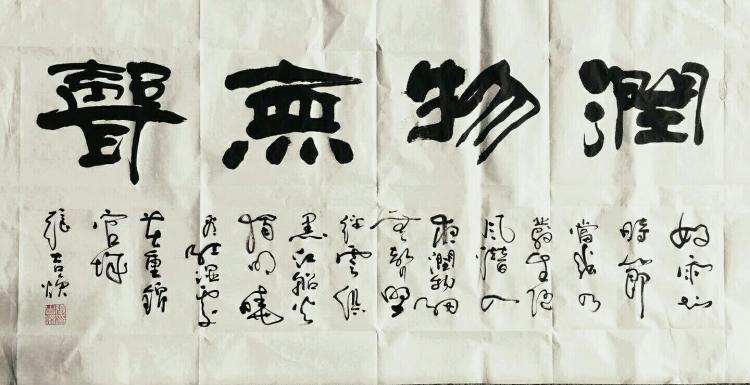 潤物無聲
好雨知
時節
當春乃
發生隨
風潛入
夜潤物細
無聲野
徑雲俱
黑江船火
獨明曉
看紅濕處
花重錦
官城
張吉